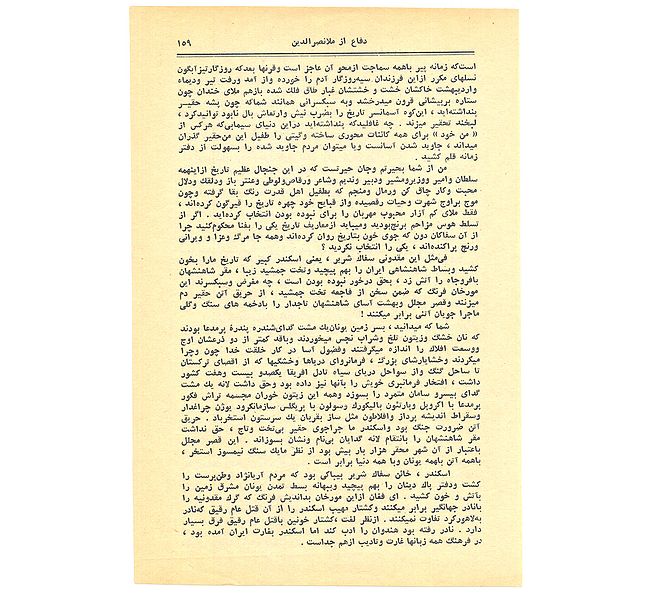 دفاع از ملانصرالدین ۱۵۹
است‌که زمانه پیر باهمه سماجت ازمحو آن عاجز است وقرنها بعدکه روزگارتیزآبگون
نسلهای مکرر ازاین فرزندان سیه‌روزگار آدم را خورده واز آمد ورفت تیر ودیماه
واردیبهشت خاکشان خشت و خشتشان غبار طاق فلک شده بازهم ملای خندان چون
ستاره بر پیشانی قرون میدرخشد وبه سبکسرانی همانند شماکه چون پشه حقیر
بنداشته‌اید ، این‌کوه آسمانسر تاریخ را بضرب نیش وارتعاش بال نابود توانیدکرد ،
لبخند تحقیر میزند . چه غافلیدکه پنداشته‌اید دراین دنیای سیمابی‌که هرکس از
« من خود » برای همه کائنات محوری ساخته وگیتی را طفیل این من‌حقیر گذران
میداند ، جاوید شدن آسانست ویا میتوان مردم جاوید شده را بسهولت از دفتر
زمانه قلم کشید .
من از شما بحیرتم وجای حیرتست که در این جنجال عظیم تاریخ ازاینهمه
سلطان وامیر ووزیرومشیر ودبیر وندیم وشاعر ورقاص‌ولوطی وعنتر باز ودلقک ودلال
محبت وکار چاق کن ورمال ومنجم که بطفیل اهل قدرت رنگ بقا گرفته وچون
موج براوج شهرت وحیات رقصیده واز قبایح خود چهره تاریخ را قیرگون کرده‌اند ،
فقط ملای کم آزار محبوب مهربان را برای نبوده بودن انتخاب کرده‌اید . اگر از
تسلط هوس مزاحم برنج‌بودید ومیباید ازمعاریف تاریخ یکی را بفنا محکوم‌کنید چرا
از آن سفاکان دون که جوی خون بتاریخ روان کرده‌اند وهمه جا مرگ وعزا و ویرانی
ورنج پراکنده‌اند ، یکی را انتخاب نکردید ؟
فی‌مثل این مقدونی سفاک شریر ، یعنی اسکندر کبیر که تاریخ مارا بخون
کشید وبساط شاهنشاهی ایران را بهم پیچید وتخت جمشید زیبا ، مقر شاهنشهان
بافروجاه را آتش زد ، بحق درخور نبوده بودن است ، چه مغرض وسبکسرند این
مورخان فرنگ که ضمن سخن از فاجعه تخت جمشید ، از حریق آتن حقیر دم
میزنند وقصر مجلل وبهشت آسای شاهنشهان تاجدار را بادخمه های سنگ وگلی
ماجرا جویان آتنی برابر میکنند !
شما که میدانید ، بسر زمین یونان‌یک مشت گدای‌شندره پندرهٔ پرمدعا بودند
که نان خشک وزیتون تلخ وشراب نجس میخوردند وباقد کمتر از دو ذرعشان اوج
ووسعت افلاک را اندازه میگرفتند وفضول آسا در کار خلقت خدا چون وچرا
میکردند وخشایارشای بزرگ ، فرمانروای دریاها وخشکیها که از اقصای ترکستان
تا ساحل گنگ واز سواحل دریای سیاه تادل افریقا یکصدو بیست وهفت کشور
داشت ، افتخار فرمانبری خویش را بآنها نیز داده بود وحق داشت لانه یک مشت
گدای بیسرو سامان متمرد را بسوزد وهمه این زیتون خوران مجسمه تراش فکور
پرمدعا با اکروپل وپارتنون بالیکورک وسولون با پریکلس سازمانگرود یوژن چراغدار
وسقراط اندیشه پرداز وافلاطون مثل ساز بقربان یک سرستون استخرباد . حریق
آتن ضرورت جنگ بود واسکندر ما جراجوی حقیر بی‌تخت وتاج ، حق نداشت
مقر شاهنشهان را بانتقام لانه گدایان بی‌نام ونشان بسوزاند . این قصر مجلل
باعتبار از آن شهر محقر هزار بار بیش بود از نظر مایک سنگ نیمسوز استخر ،
باهمه آتن باهمه یونان وبا همه دنیا برابر است .
اسکندر ، خائن سفاک شریر بیباکی بود که مردم آریانژاد وطن‌پرست را
کشت ودفتر پاک دینان را بهم پیچید وبهانه بسط تمدن یونان مشرق زمین را
بآتش و خون کشید . ای فغان ازاین مورخان بداندیش فرنگ که گرگ مقدونیه را
بانادر جهانگیر برابر میکنند وکشتار مهیب اسکندر را از آن قتل عام رقیق که‌نادر
به‌لاهورکرد تفاوت نمیکنند . ازنظر لغت ،کشتار خونین باقتل عام رقیق فرق بسیار
دارد . نادر رفته بود هندوان را ادب کند اما اسکندر بغارت ایران آمده بود ،
در فرهنگ همه زبانها غارت وتادیب ازهم جداست .